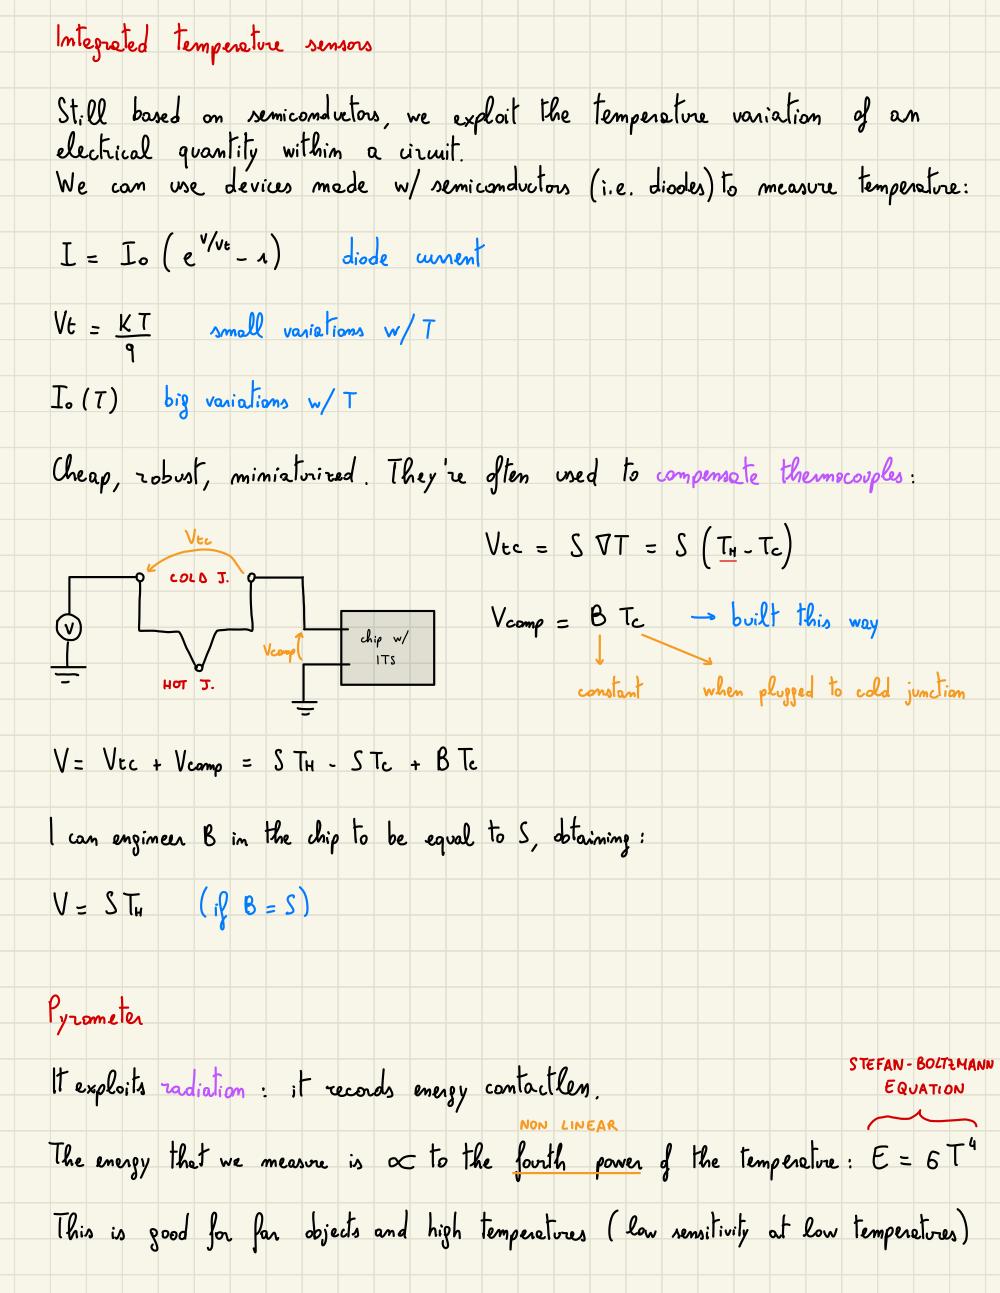 Integrated temperature sensors
Still based on semiconductors, we exploit the temperature variation of an
electrical quantity within a circuit.
We can use devices made w/ semiconductors (i.e. diodes) to measure temperature:
I = I₀ (e^(V/Vt) - 1) diode current
Vt = KT/q small variations w/ T
I₀(T) big variations w/ T
Cheap, robust, miniaturized. They're often used to compensate thermocouples:
Vtc
COLD J.
V
HOT J.
Vcomp
chip w/
ITS
Vtc = S ∇T = S (T_H - Tc)
Vcomp = B Tc → built this way
constant when plugged to cold junction
V = Vtc + Vcomp = S T_H - S Tc + B Tc
I can engineer B in the chip to be equal to S, obtaining:
V = S T_H (if B = S)
Pyrometer
STEFAN-BOLTZMANN
EQUATION
It exploits radiation : it records energy contactless.
NON LINEAR
The energy that we measure is ∝ to the fourth power of the temperature: E = σ T⁴
This is good for far objects and high temperatures (low sensitivity at low temperatures)